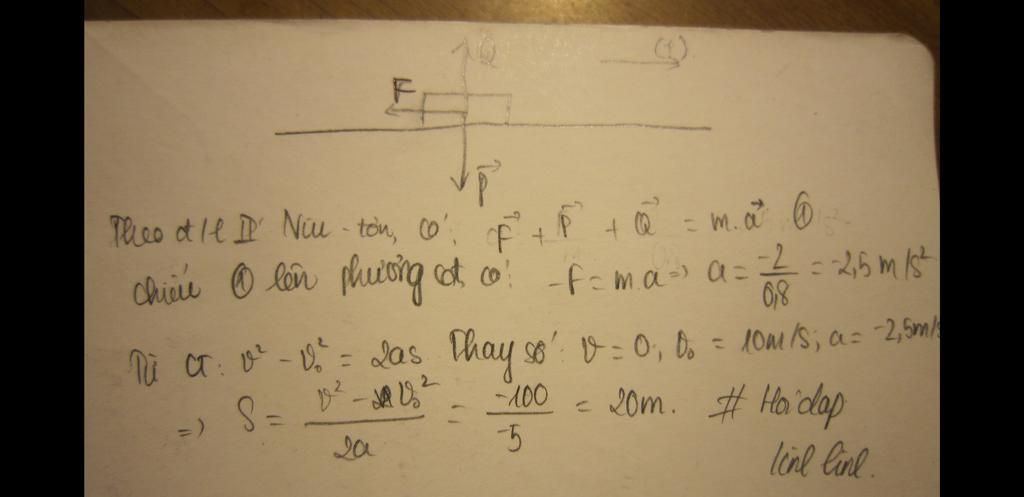 Q (1)
F
P⃗
Theo đ/l II Niu-tơn, có: F⃗ + P⃗ + Q⃗ = m.a⃗ ①
chiếu ① lên phương cđ, có: -F = m.a => a = -2/0,8 = -2,5 m/s²
Từ CT: v² - v₀² = 2as Thay số: v = 0; v₀ = 10m/s; a = -2,5m/s
=> S = (v² - v₀²)/2a = -100/-5 = 20m. # Hoidap
linl linl.